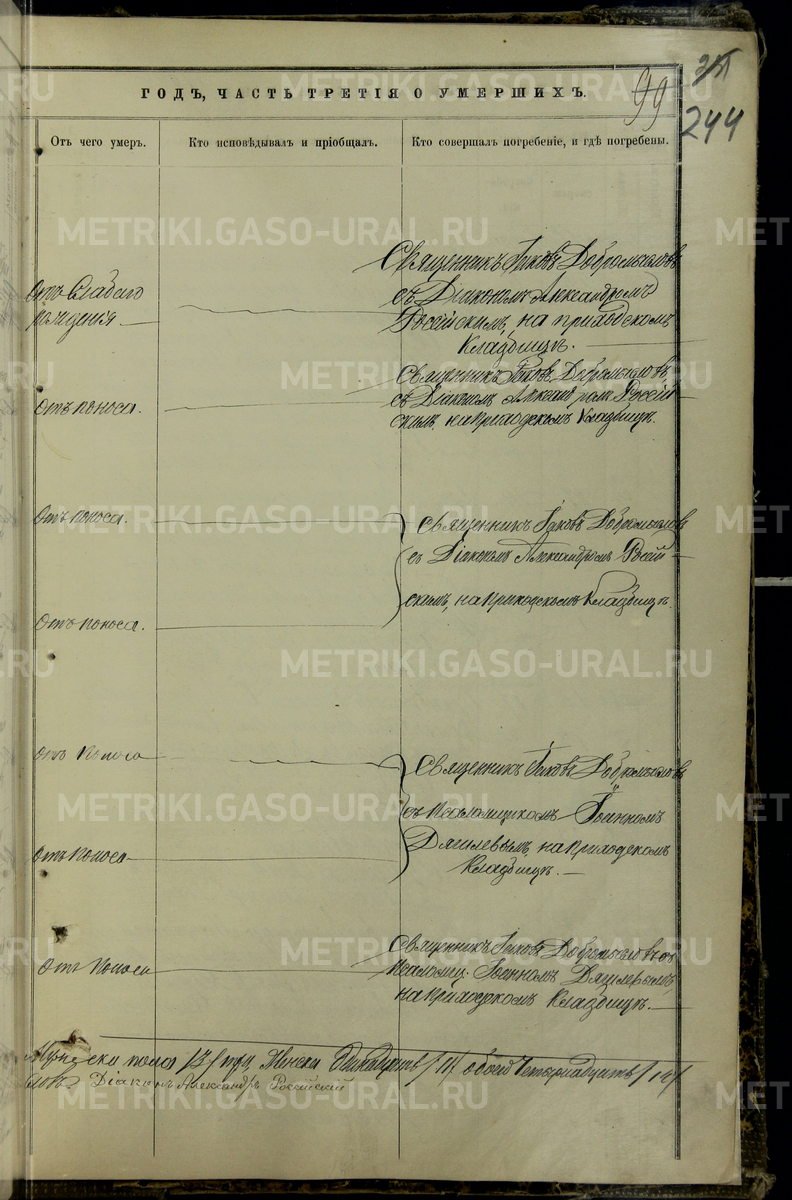 ГОДЪ, ЧАСТЬ ТРЕТІЯ О УМЕРШИХЪ.
99
244
Отъ чего умеръ.
Кто исповѣдывалъ и пріобщалъ.
Кто совершалъ погребеніе, и гдѣ погребены.
Отъ слабаго
рожденія
Священникъ Іаковъ Добромысловъ
съ Діакономъ Александромъ
Россійскимъ, на приходскомъ
кладбищѣ.
Отъ поноса.
Священникъ Іаковъ Добромысловъ,
съ Діакономъ Александромъ Россій-
скимъ, на приходскомъ кладбищѣ.
Отъ поноса.
Отъ поноса.
Священникъ Іаковъ Добромысловъ
съ Діакономъ Александромъ Россій-
скимъ, на приходскомъ кладбищѣ.
Отъ поноса
Отъ поноса
Священникъ Іаковъ Добромысловъ
съ псаломщикомъ Іоанномъ
на приходскомъ
кладбищѣ.
Отъ поноса
Священникъ Іаковъ Добромысловъ съ
псаломщ. Іоанномъ
на приходскомъ кладбищѣ.
Мужеска пола /3/ три, женска одинадцать /11/ обоего четырнадцать /14/
Діаконъ Александръ Россійскій
METRIKI.GASO-URAL.RU